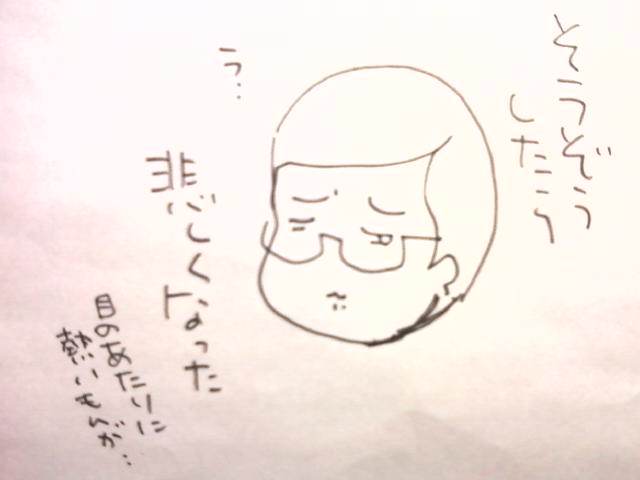 そうぞう
したらう
う…
悲しくなった
目のあたりに
熱いもんが…